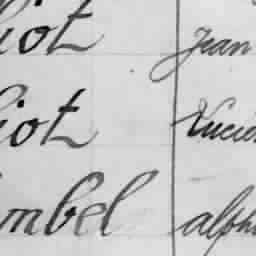 iot Jean
iot Lucie
mbel alph